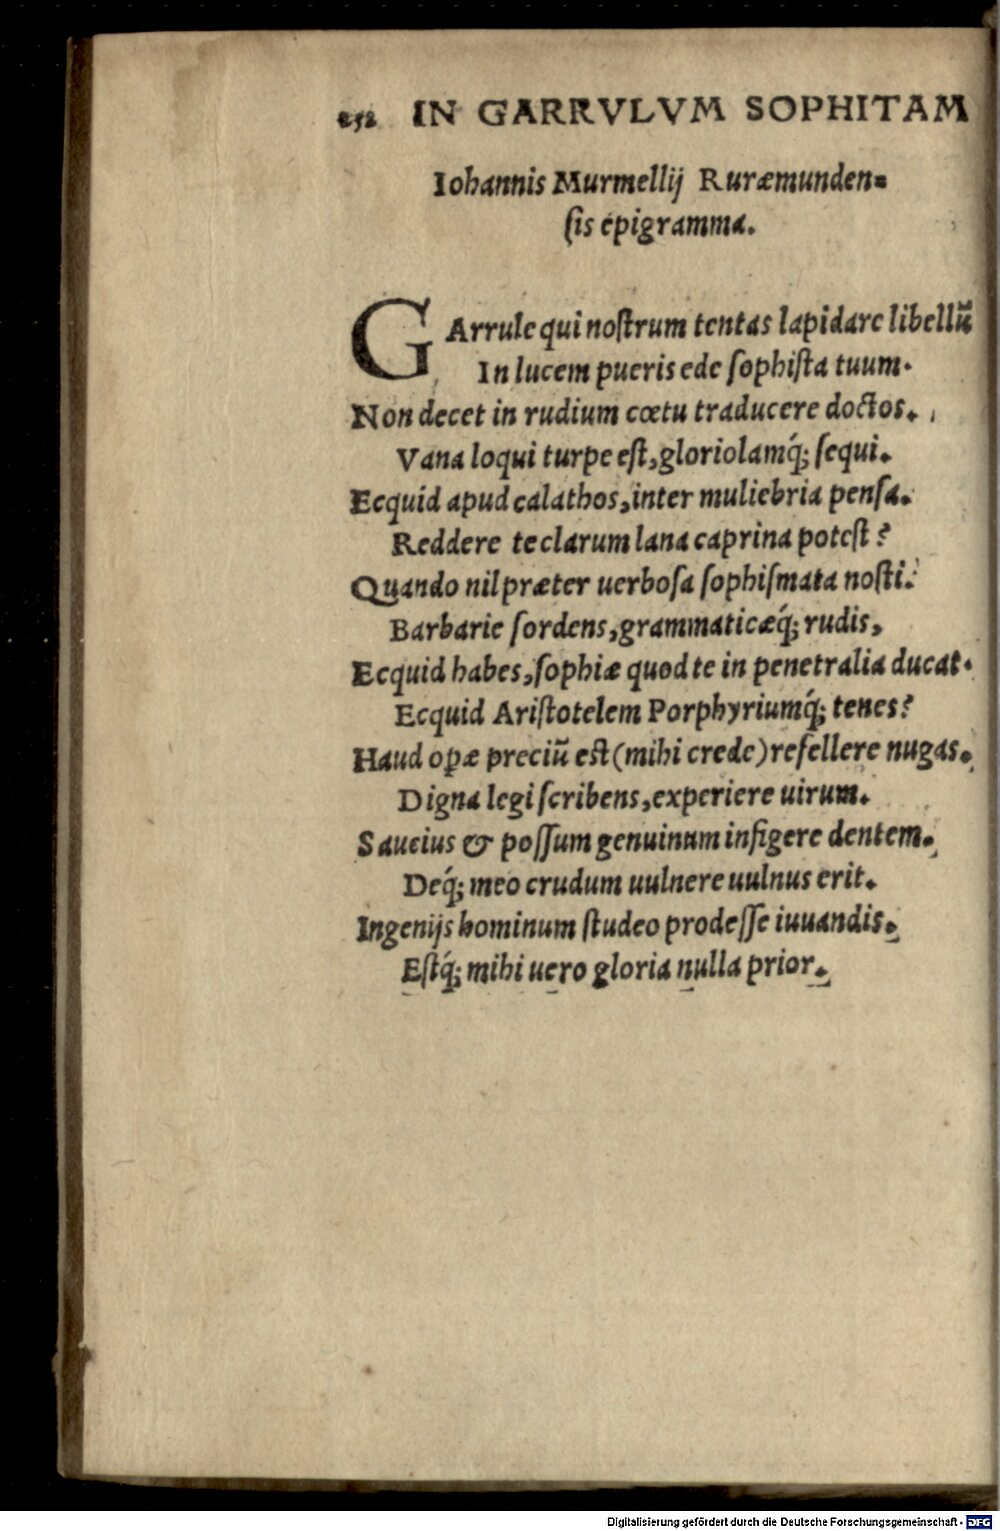 IN GARRVLVM SOPHITAM
Iohannis Murmellij Ruræmunden=
ſis epigramma.
GArrule qui noſtrum tentas lapidare libellū
In lucem pueris ede ſophiſta tuum.
Non decet in rudium cœtu traducere doctos.
Vana loqui turpe eſt, gloriolamq́; ſequi.
Ecquid apud calathos, inter muliebria penſa.
Reddere te clarum lana caprina poteſt?
Quando nil præter uerboſa ſophiſmata noſti.
Barbarie ſordens, grammaticæq́; rudis,
Ecquid habes, ſophiæ quod te in penetralia ducat.
Ecquid Ariſtotelem Porphyriumq́; tenes?
Haud opæ preciū eſt (mihi crede) refellere nugas.
Digna legi ſcribens, experiere uirum.
Saucius & poſſum genuinum infigere dentem.
Deq́; meo crudum uulnere uulnus erit.
Ingenijs hominum ſtudeo prodeſſe iuuandis.
Eſtq́; mihi uero gloria nulla prior.
Digitalisierung gefördert durch die Deutsche Forschungsgemeinschaft - DFG